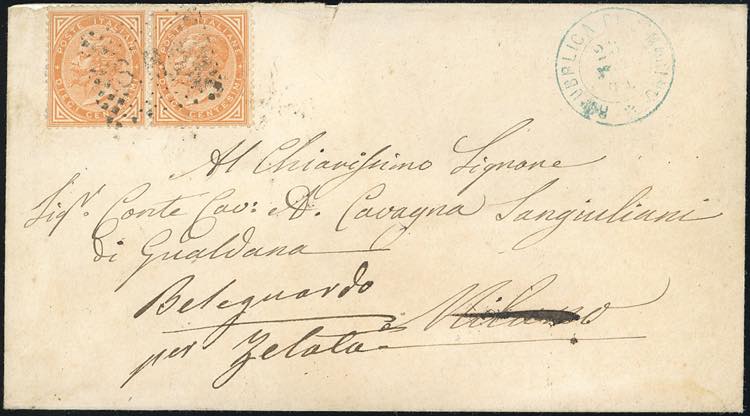 POSTE ITALIANE
DIECI CENTESIMI
POSTE ITALIANE
CENTESIMI
Al Chiarissimo Signore
Sigr. Conte Cav: A. Cavagna Sangiuliani
di Gualdana
Beleguardo
per Zelata Milano